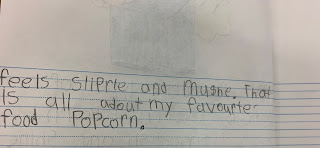 feels sliprte and mushe. That
is all adout my favourte
food Popcorn.